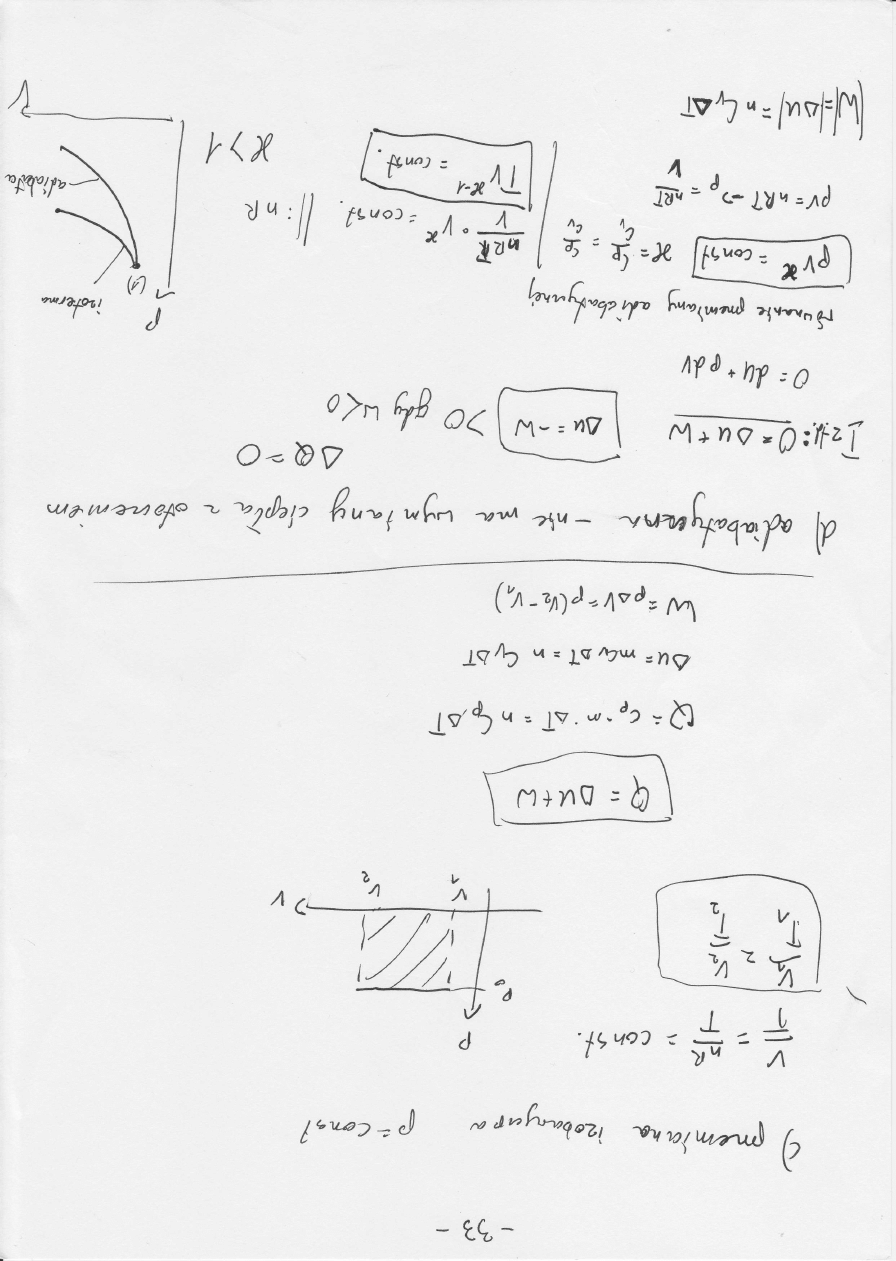 - 33 -
c) przemiana izobaryczna p = const
V/T = nR/T = const.
V₁/T₁ = V₂/T₂
p
p₀
V₁ V₂ V
Q = ΔU + W
Q = cₚ · m · ΔT = n Cₚ ΔT
ΔU = m cᵥ ΔT = n Cᵥ ΔT
W = p ΔV = p (V₂ - V₁)
d) adiabatyczna - nie ma wymiany ciepła z otoczeniem
ΔQ = 0
I z.t.: 0 = ΔU + W
ΔU = -W > 0 gdy W < 0
0 = dU + p dV
równanie przemiany adiabatycznej
pV^ϰ = const
ϰ = Cₚ/Cᵥ = cₚ/cᵥ
pV = nRT -> p = nRT/V
|W| = |ΔU| = n Cᵥ ΔT
nRT/V · V^ϰ = const. || : nR
TV^(ϰ-1) = const.
ϰ > 1
p
izoterma
(1)
adiabata
V